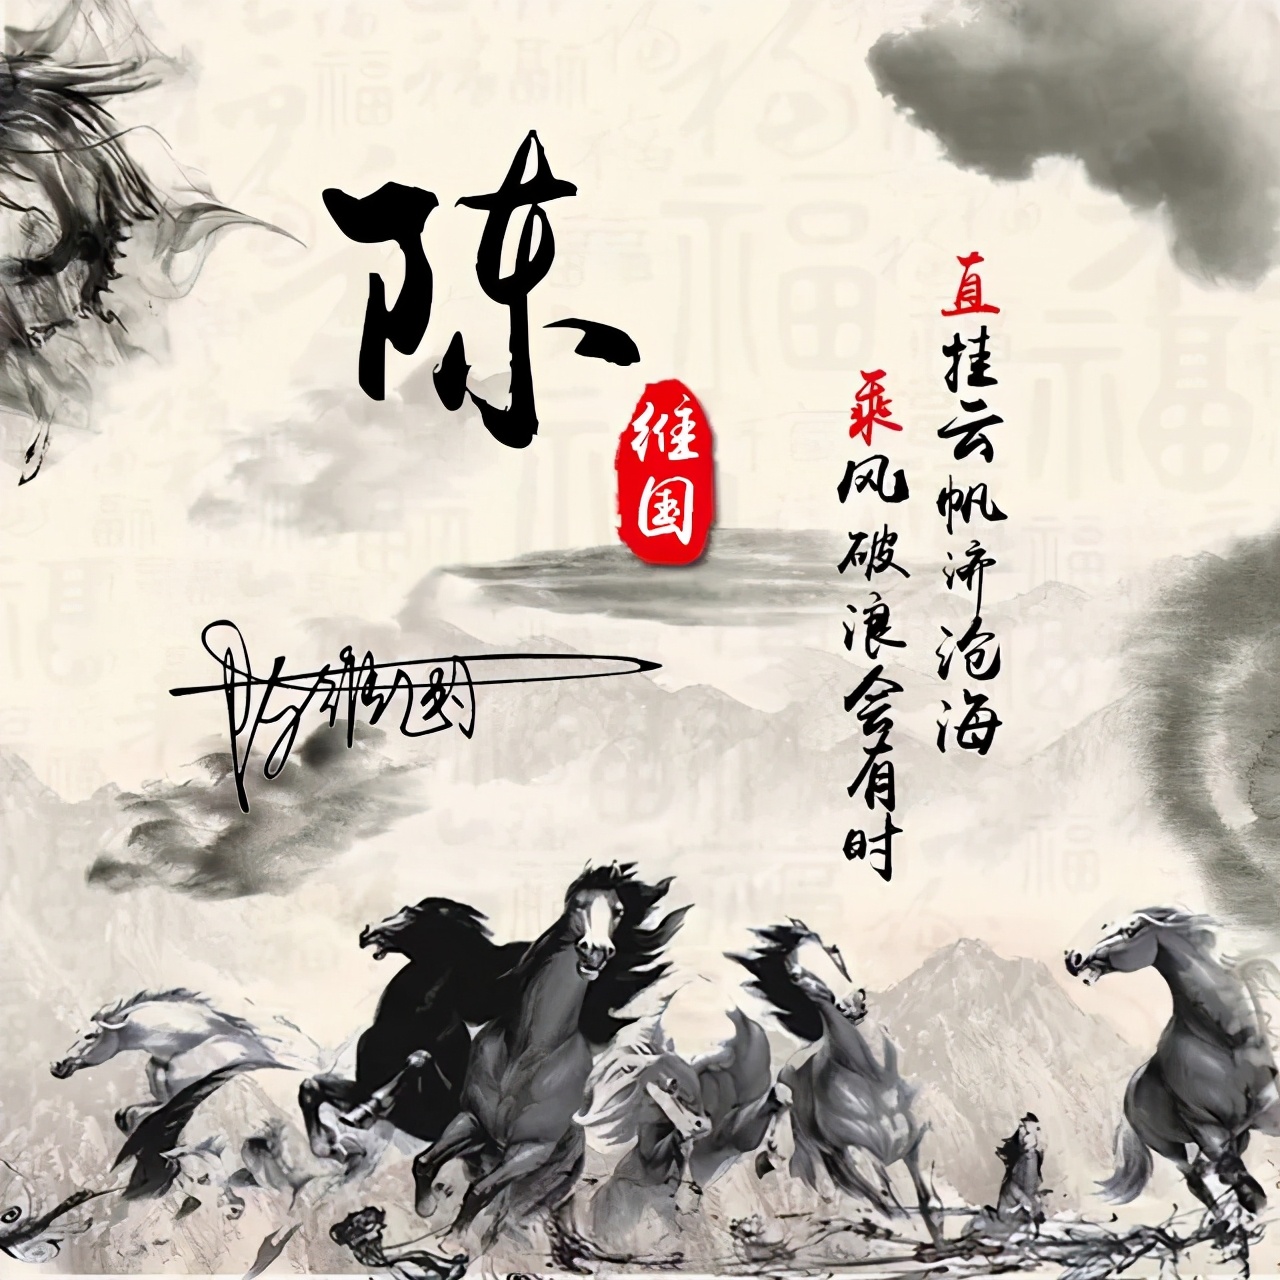 陈
维国
直挂云帆济沧海
乘风破浪会有时
陈维国